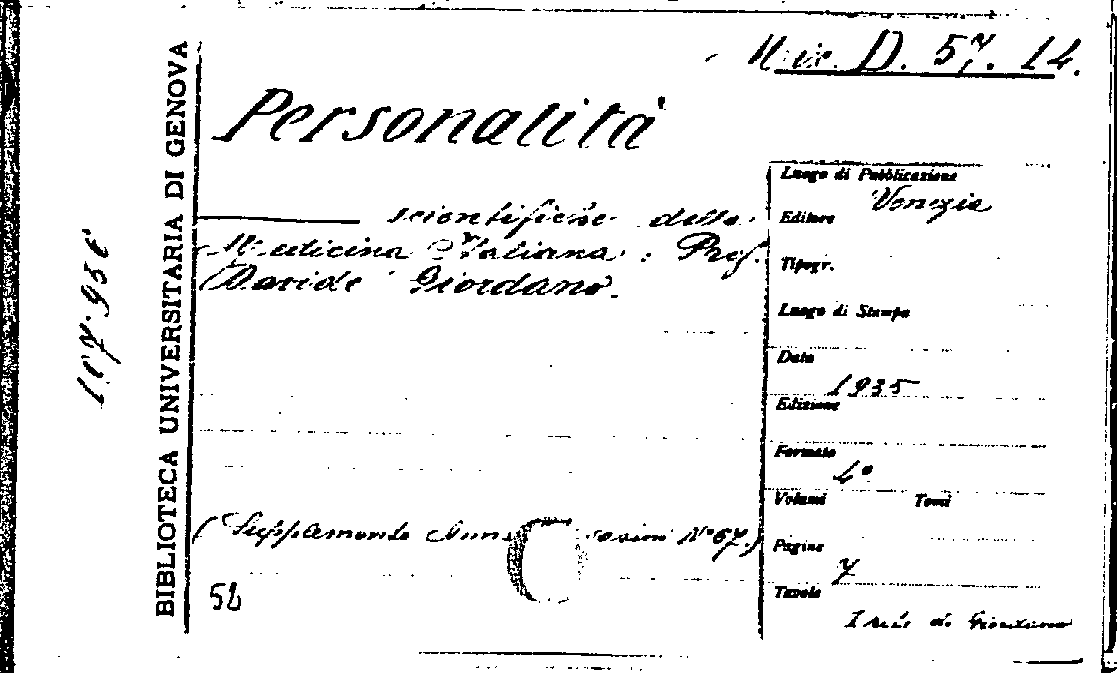 Misc. D. 57. 14.
Personalità
scientifiche della
Medicina Italiana: Prof.
Davide Giordano.
(Supplemento N° 57.)
52
BIBLIOTECA UNIVERSITARIA DI GENOVA
107.936
Luogo di Pubblicazione
Venezia
Editore
Tipogr.
Luogo di Stampa
Data
1935
Edizione
Formato
4°
Volumi Tomi
Pagine
7
Tavole
di Giordano